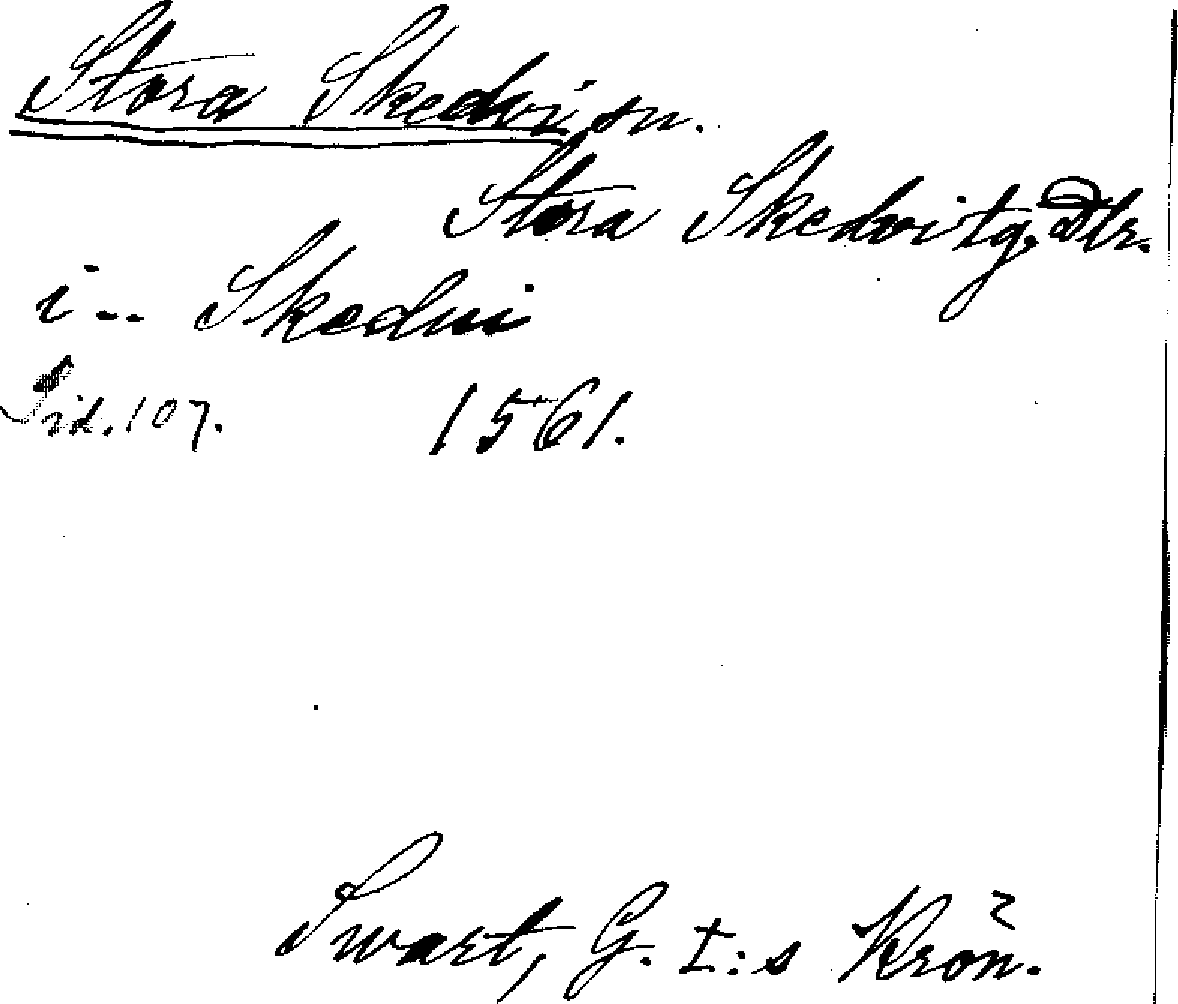 Stora Skedvi sn.
Stora Skedvi tg. Dlr.
i -- Skedui
Sid. 107. 1561.
Swart, G. I:s Krön.